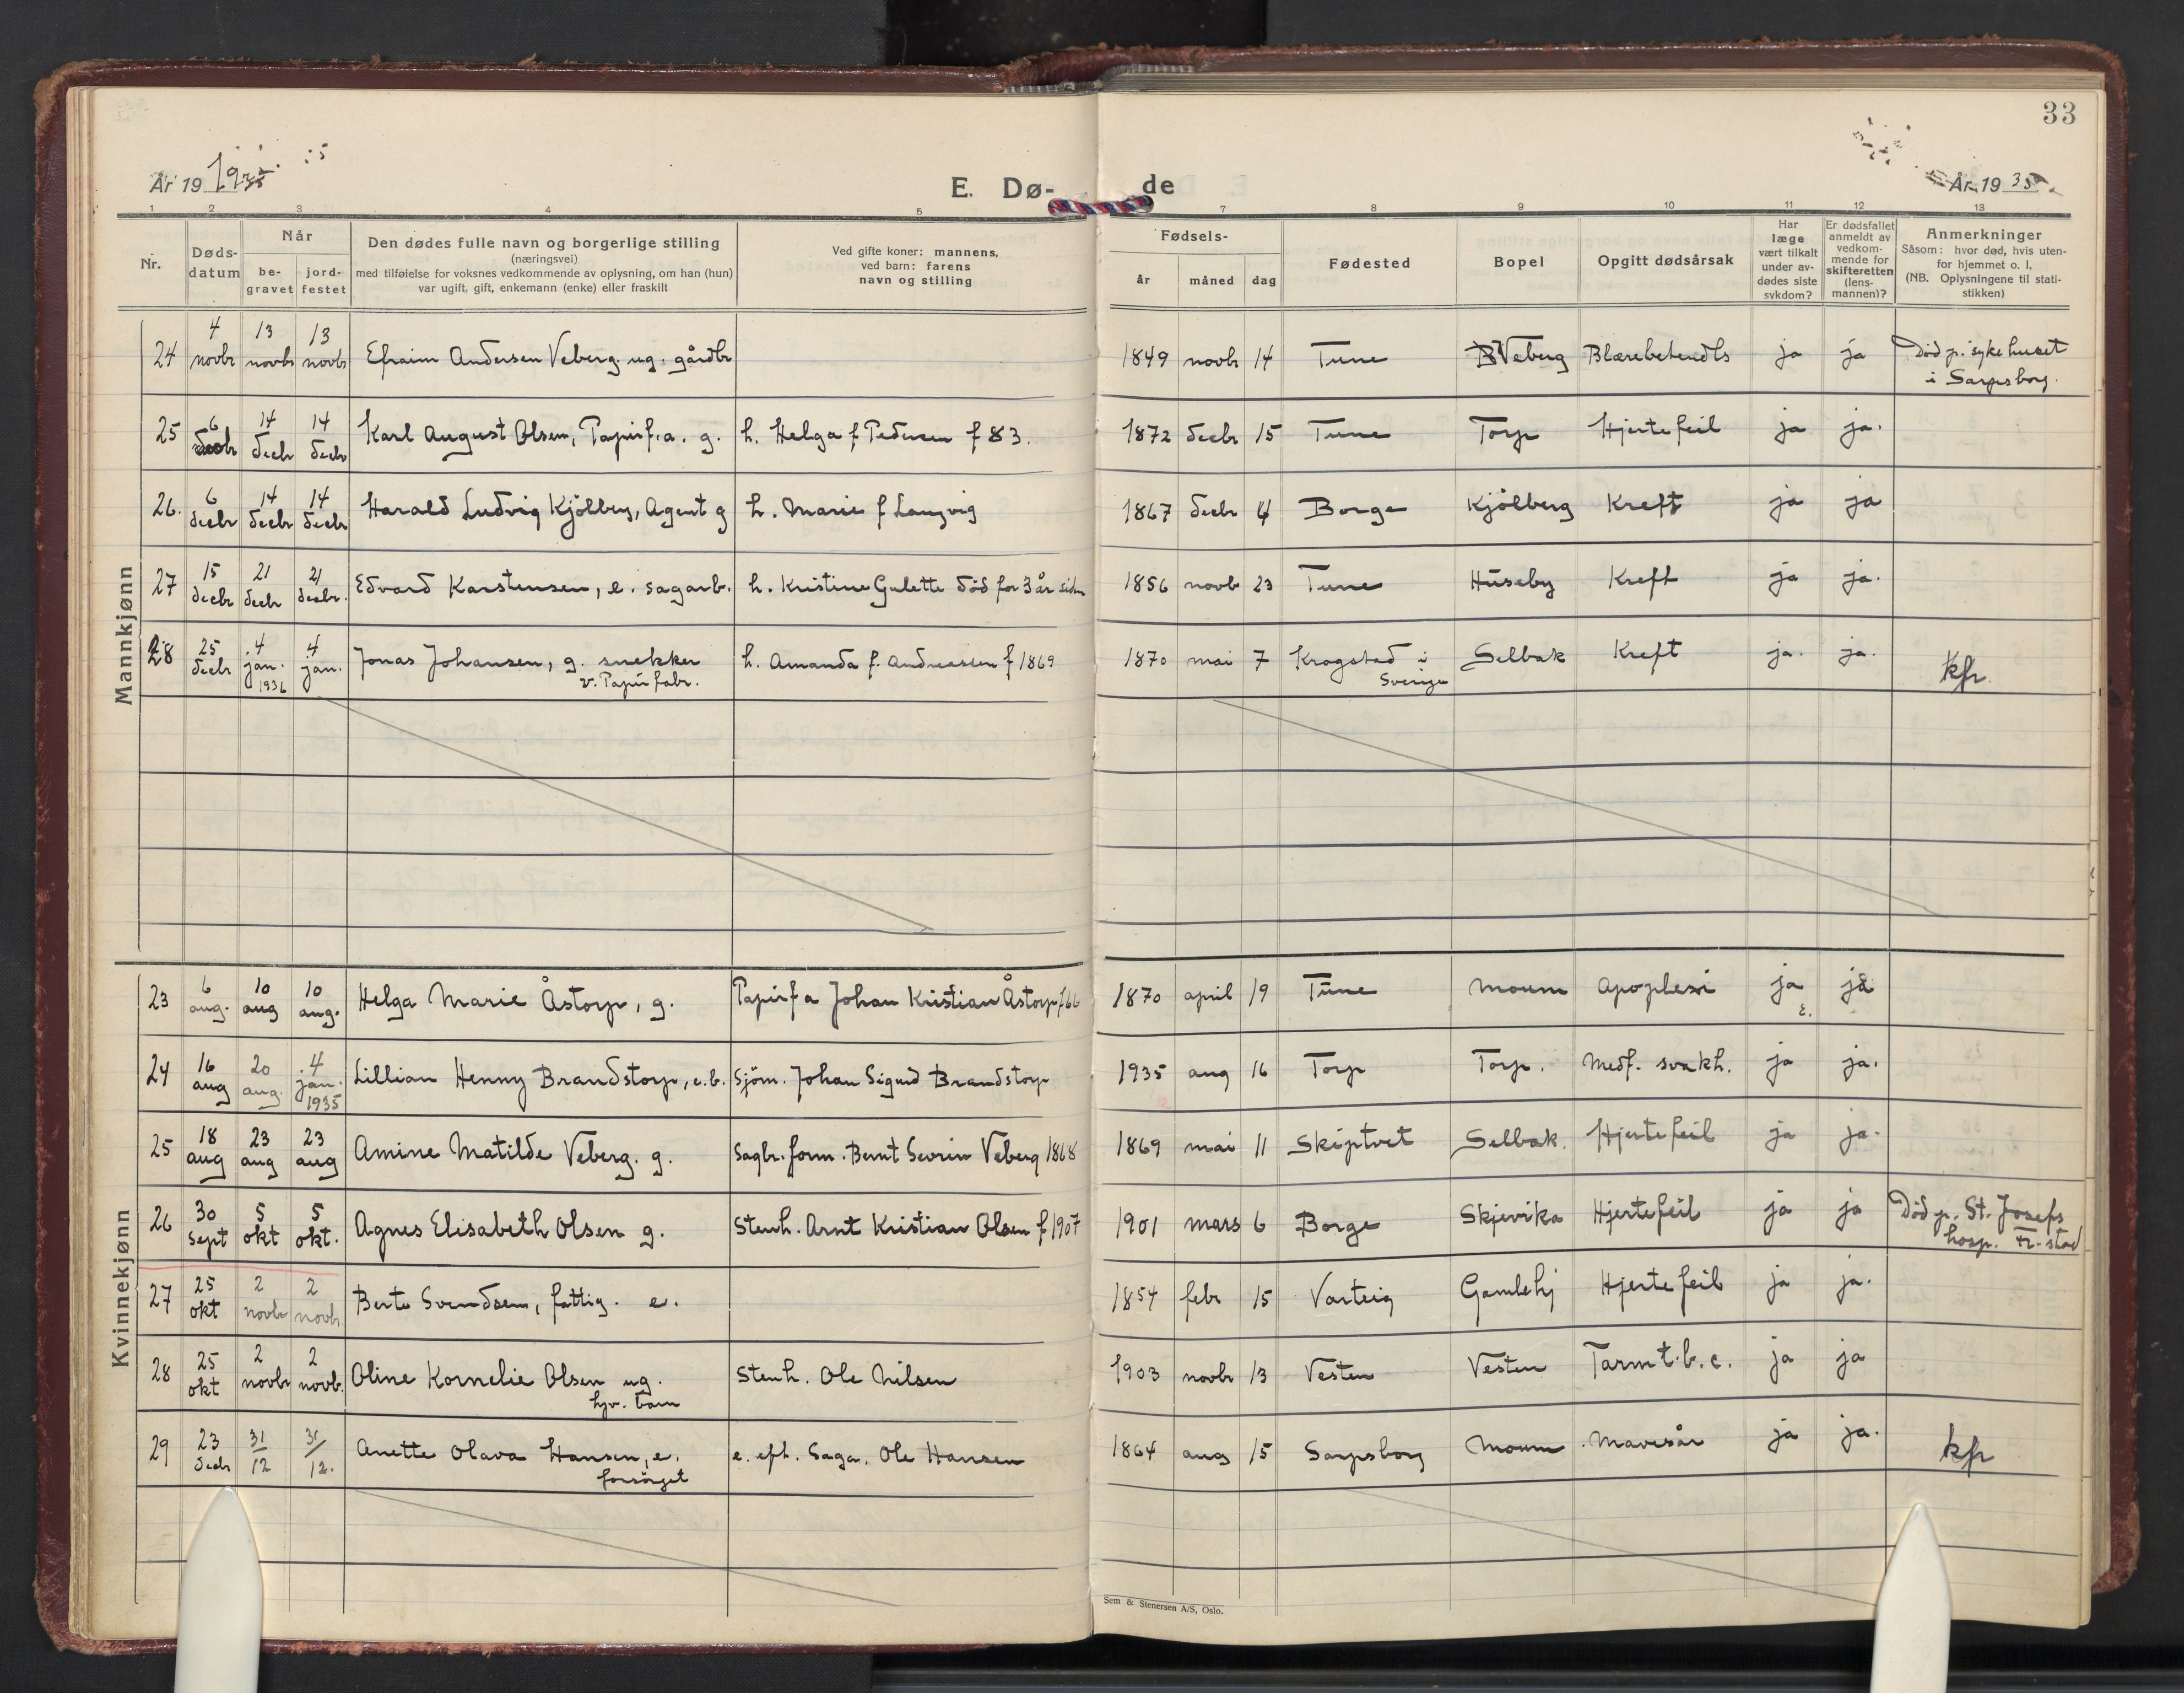 33
År 19 1935
E. Dø-
de
År 19 35
1 2 3 4 5 7 8 9 10 11 12 13
Nr.
Døds-
datum
Når
be-
gravet
jord-
festet
Den dødes fulle navn og borgerlige stilling
(næringsvei)
med tilføielse for voksnes vedkommende av oplysning, om han (hun)
var ugift, gift, enkemann (enke) eller fraskilt
Ved gifte koner: mannens,
ved barn: farens
navn og stilling
Fødsels-
år måned dag
Fødested
Bopel
Opgitt dødsårsak
Har
læge
vært tilkalt
under av-
dødes siste
sykdom?
Er dødsfallet
anmeldt av
vedkom-
mende for
skifteretten
(lens-
mannen)?
Anmerkninger
Såsom: hvor død, hvis uten-
for hjemmet o. l.
(NB. Oplysningene til stati-
stikken)
Mannkjønn
24 4 novbr 13 novbr 13 novbr Efraim Andersen Veberg. ug. gårdbr 1849 novbr 14 Tune Veberg ja ja Död p. sykehuset
i Sarpsborg.
25 6 decbr 14 decbr 14 decbr Karl August Olsen, Papirf.a. g. h. Helga f Pedersen f 83. 1872 decbr 15 Tune Torp Hjertefeil ja ja.
26. 6 decbr 14 decbr 14 decbr Harald Ludvig Kjölberg, Agent g h. Marie f Langvig 1867 decbr 4 Borge Kjölberg Kreft ja ja
27 15 decbr 21 decbr 21 decbr. Edvard Karstensen, e. sagarb. h. Kristine Gulette död for 3 år siden 1856 novb 23 Tune Huseby Kreft ja ja.
28 25 decbr 4 jan. 1936 4 jan. Jonas Johansen, g. snekker
v. Papirfabr.
h. Amanda f. Andreassen f 1869 1870 mai 7 Krogstad i
Sverige
Selbak Kreft ja. ja. kfr.
Kvinnekjønn
23 6 aug. 10 aug 10 aug. Helga Marie Åstorp, g. Papirfa Johan Kristian Åstorp f 66 1870 april 19 Tune Moum Apoplexi ja ja
24 16 aug 20 aug. 4 jan. 1935 Lillian Henny Brandstorp, e.b. Sjöm. Johan Sigurd Brandstorp 1935 aug 16 Torp Torp. Medf. svakh. ja ja.
25 18 aug 23 aug 23 aug Amine Matilde Veberg. g. Sagbr. form. Bernt Sevrin Veberg 1868 1869 mai 11 Skiptvet Selbak. Hjertefeil ja ja.
26 30 sept 5 okt 5 okt. Agnes Elisabeth Olsen g. Stenh. Arnt Kristian Olsen f 1907 1901 mars 6 Borge Skjevika Hjertefeil ja ja Död p. St. Josefs
hosp. Fr.stad
27 25 okt 2 novbr 2 novb Berte Svendsen, fattig. e. 1854 febr 15 Varteig Gamlehj Hjertefeil ja ja.
28 25 okt 2 novbr 2 novb. Oline Kornelie Olsen ug.
hjv. barn
Stenh. Ole Nilsen 1903 novbr 13 Vesten Vesten Tarm t.b.c. ja ja
29 23 decbr 31/12 31/12. Anette Olava Hansen, e.
forsörget
e. eft. Saga. Ole Hansen 1864 aug 15 Sarpsborg Moum Mavesår ja ja. kfr
Sem & Stenersen A/S, Oslo.